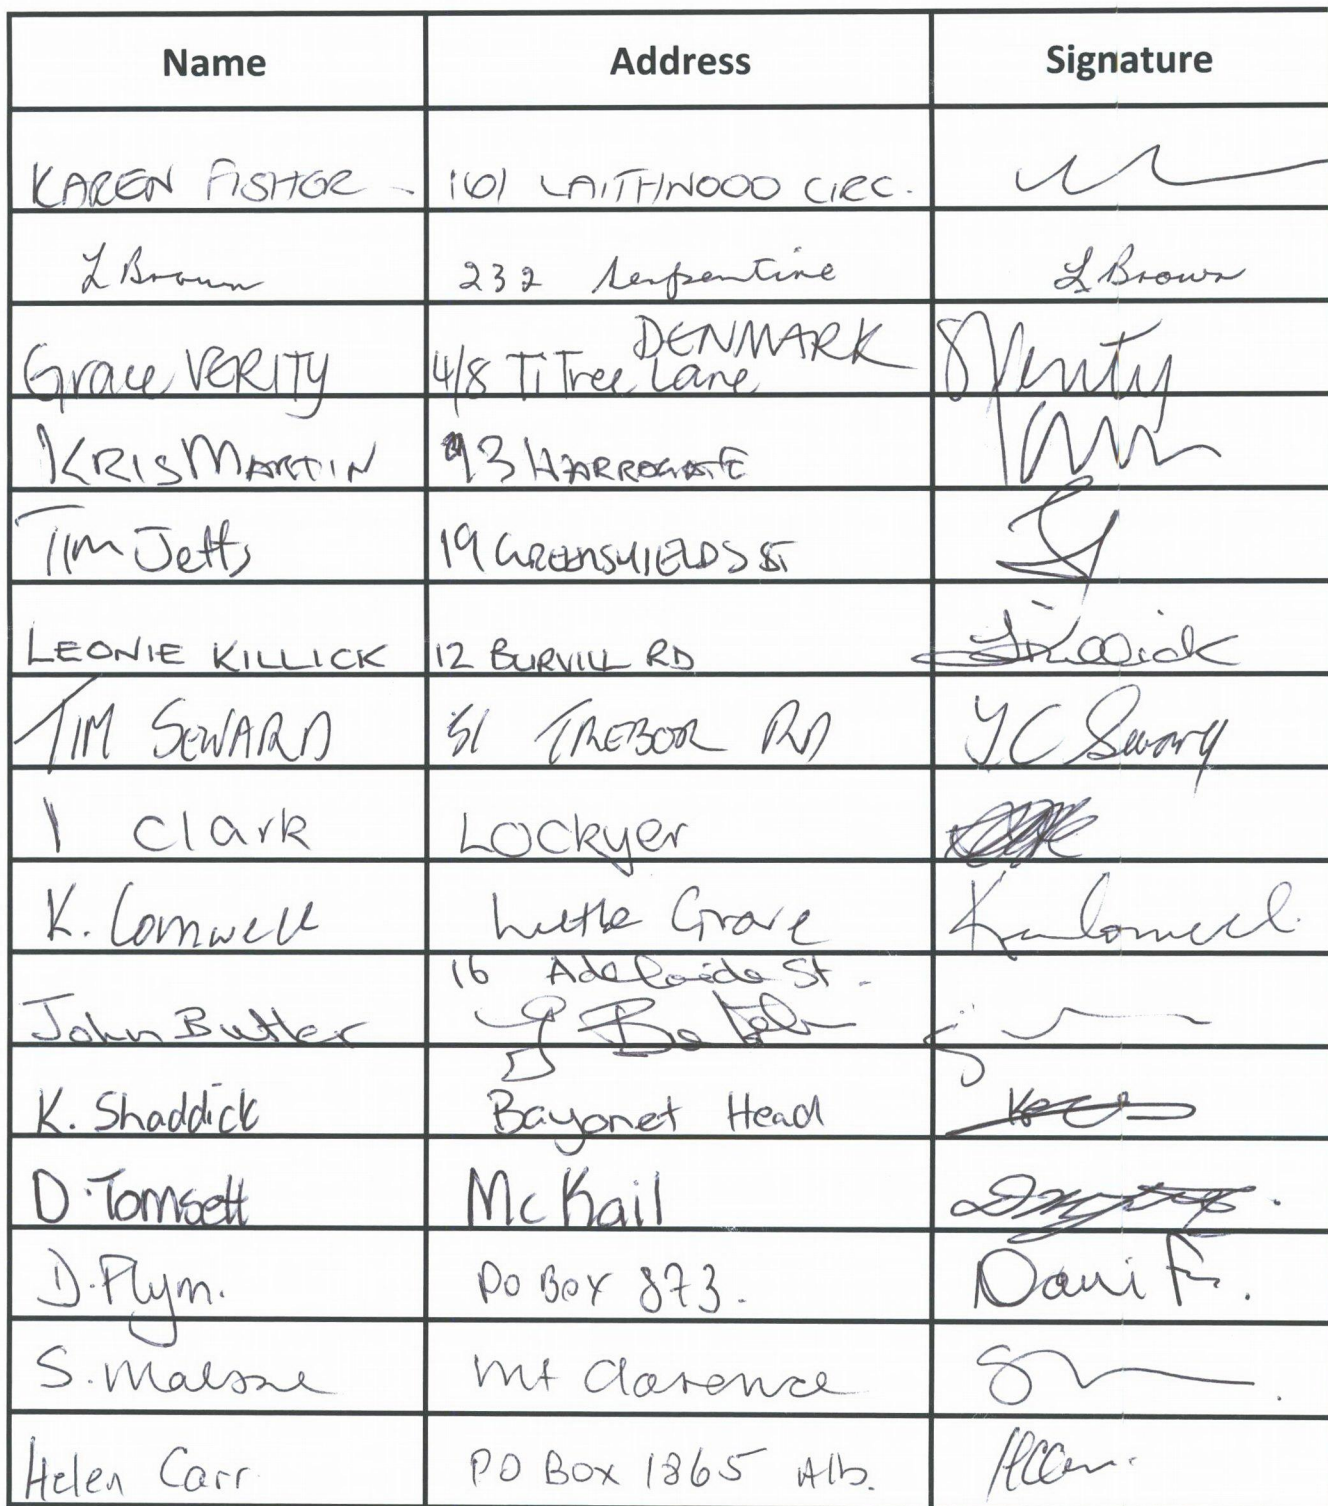 Name Address Signature
KAREN FISHER - 161 LAITHWOOD CIRC.
L Brown 232 Serpentine L Brown
DENMARK
Grace VERITY 4/8 Ti Tree Lane Verity
KRIS MARTIN 93 HARROGATE
Tim Jetts 19 GREENSHIELDS ST
LEONIE KILLICK 12 BURVILL RD Killick
TIM SEWARD 51 TREBOR RD TC Seward
I Clark Lockyer
K. Cornwell Little Grove
16 Adelaide St.
John Butler
K. Shaddick Bayonet Head
D. Tomsett McKail
D. Flynn. PO Box 873. Dani F.
S. Malone Mt Clarence
Helen Carr PO BOX 1865 Alb.